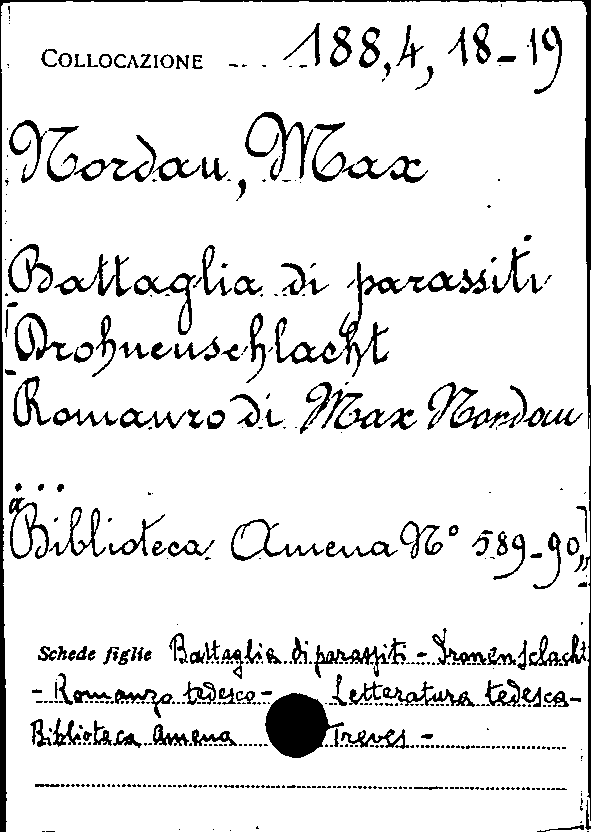 COLLOCAZIONE 188,4, 18-19
Nordau, Max
Battaglia di parassiti
[Drohnenschlacht
Romanzo di Max Nordau
...
Biblioteca Amena N° 589-90,,]
Schede figlie Battaglia di parassiti - Dronenschlacht
- Romanzo tedesco - Letteratura tedesca -
Biblioteca amena Treves -